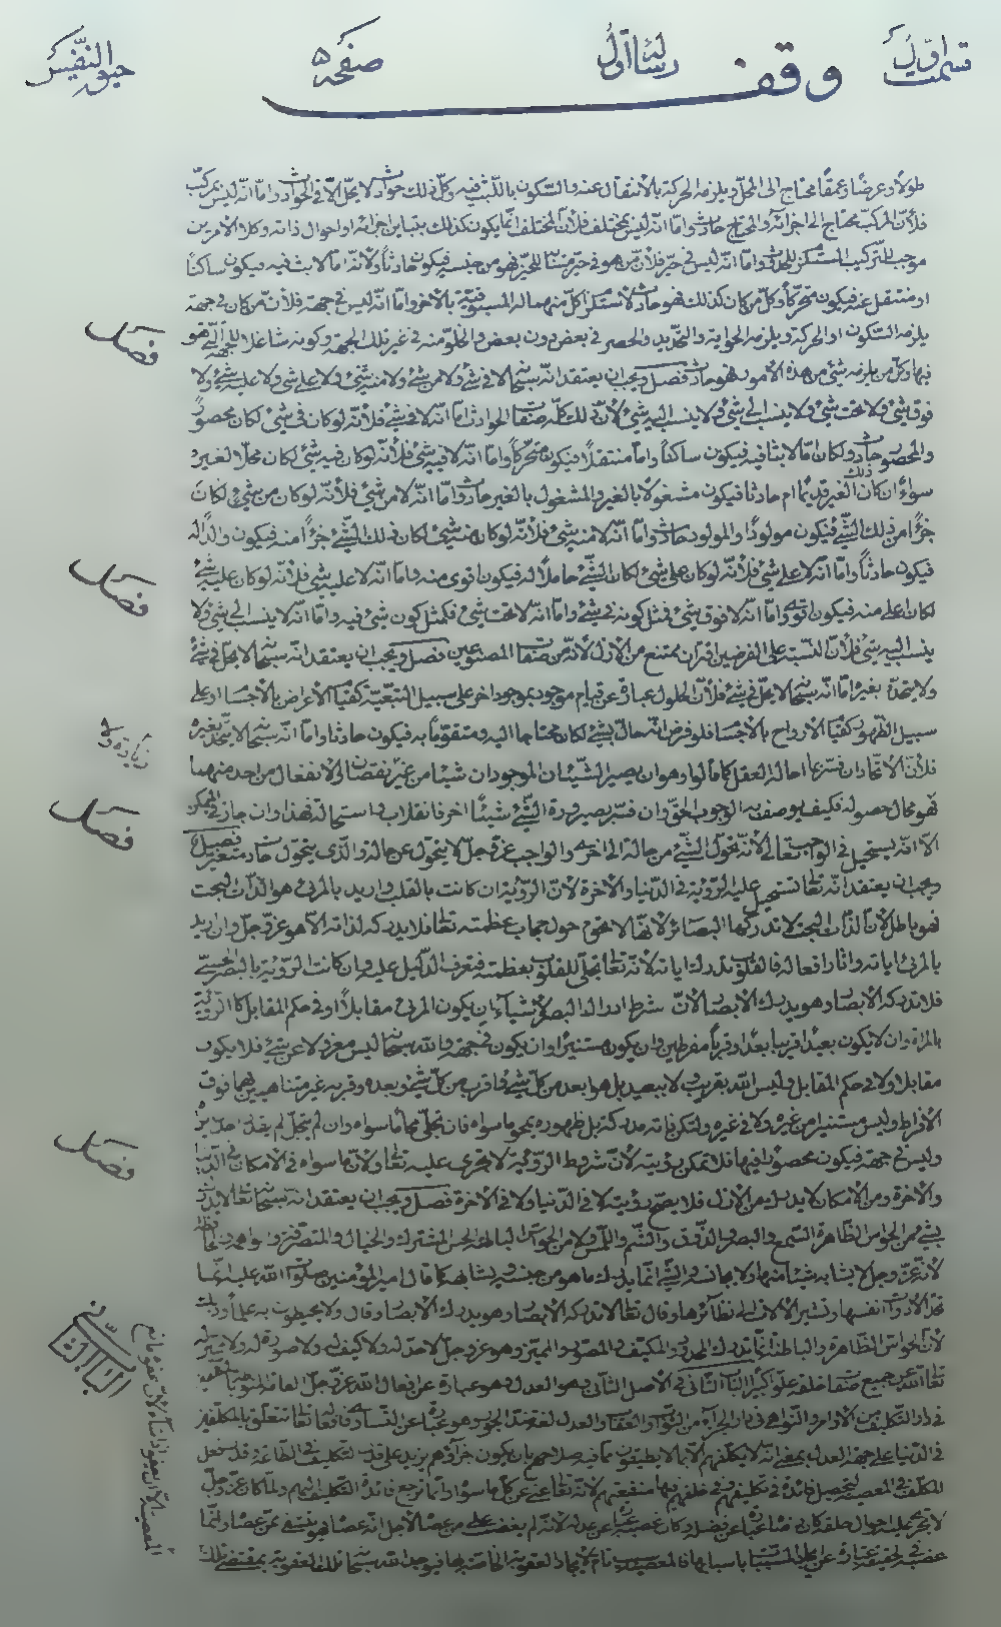 قسمت اوّل
رسالهٔ اول
وقف
صفحه ۵
حيوة النّفس
طولاً وعرضًا وعمقًا محتاج الى المحلّ ويلزمه الحركة بالانتقال عنه والسّكون باللّبث فيه وكلّ ذلك حوادث لا يحلّ الّا فى الحوادث وامّا انّه ليس بمركّب
فلأنّ المركّب محتاج الى اجزائه والمحتاج حادث وامّا انّه ليس بمختلف فلأنّ المختلف انّما يكون كذلك بتباين اجزائه او احوال ذاته وكلا الامرين
موجب للتّركيب المستلزم للحدوث وامّا انّه ليس فى حيّز فلأنّ من هو فى حيّز فهو من جنسه فيكون حادثاً ولانّه امّا لابث فيه فيكون ساكناً
او منتقل عنه فيكون متحرّكاً وكلّ من كان كذلك فهو حادث لاستلزام كلّ منهما له المسبوقيّة بالآخر وامّا انّه ليس فى جهة فلأنّ من كان فى جهة
يلزمه السّكون او الحركة ويلزمه الحواية والتّحديد والحصر فى بعض دون بعض والخلوّ منه فى غير تلك الجهة وكونه شاغلاً للجهة الّتى هو
فيها وكلّ من يلزمه شىء من هذه الأمور فهو حادث فصل ويجب ان يعتقد انّه سبحانه لا فى شىء ولا من شىء ولا منه شىء ولا على شىء ولا عليه شىء ولا
فوق شىء ولا تحت شىء ولا ينسب الى شىء ولا ينسب اليه شىء لأنّ ذلك كلّه صفات الحوادث امّا انّه لا فى شىء فلأنّه لو كان فى شىء لكان محصوراً
والمحصور حادث ولكان امّا لابثا فيه فيكون ساكناً وامّا منتقلاً فيكون متحرّكاً وامّا انّه لا فيه شىء فلأنّه لو كان فيه شىء لكان محلّا لغيره
سواء ان كان ذلك الغير قديماً ام حادثا فيكون مشغولا بالغير والمشغول بالغير حادث وامّا انّه لا من شىء فلأنّه لو كان من شىء لكان
جزءاً من ذلك الشّىء فيكون مولودًا والمولود حادث وامّا انّه لا منه شىء فلأنّه لو كان منه شىء لكان ذلك الشّىء جزءاً منه فيكون والداً له
فيكون حادثاً وامّا انّه لا على شىء فلأنّه لو كان على شىء لكان الشّىء حاملاً له فيكون اقوى منه وامّا انّه لا عليه شىء فلأنّه لو كان عليه شىء
لكان اعلى منه فيكون اقوى وامّا انّه لا فوق شىء فمثل كونه على شىء وامّا انّه لا تحت شىء فكمثل كون شىء فيه وامّا انّه لا ينسب الى شىء ولا
ينسب اليه شىء فلأنّ النّسبة على الفرضين اقتران يمتنع من الأزل لأنّه من صفات المصنوعين فصل ويجب ان يعتقد انّه سبحانه لا يحلّ فى شىء
ولا يتّحد بغيره امّا انّه سبحانه لا يحلّ فى شىء فلأنّ الحلول عبارة عن قيام موجود بموجود اخر على سبيل التّبعيّة كقيام الأعراض بالأجسام او على
سبيل الظّهور كقيام الأرواح بالأجسام فلو فرض انّه حالّ بشىء لكان محتاجا اليه ومتقوّماً به فيكون حادثا وامّا انّه سبحانه لا يتّحد بغيره
فلأنّ الاتّحاد ان فسّر بما احاله العقل كما قالوا وهو ان يصير الشّيئان الموجودان شيئا من غير نقصان ولا انفعال من احد منهما
فهو محال حصوله فكيف يوصف به الوجوب الحقّ وان فسّر بصيرورة الشّىء شيئًا اخر فانقلاب واستحالة فهذا وان جاز فى الممكن
الّا انّه يستحيل فى الواجب تعالى لأنّه تحوّل الشّىء من حالة الى اخرى والواجب عزّ وجلّ لا يتحوّل عن حالة والّذى يتحوّل حادث متغيّر فصل
ويجب ان يعتقد انّه تعالى تستحيل عليه الرّؤية فى الدّنيا والآخرة لأنّ الرّؤية ان كانت بالقلب واريد بالمرئى هو الذّات البحت
فهو باطل لأنّ الذّات البحت لا تدركها البصائر لانّها لا تحوم حول حجاب عظمته تعالى فلا يدركه لذاته الّا هو عزّ وجلّ وان اريد
بالمرئى اياته واثار افعاله فالقلوب تدرك اياته لأنّه تعالى تجلّى للقلوب بعظمته فتعرف الدّليل عليه وان كانت الرّؤية بالبصر الحسّى
فلا تدركه الأبصار وهو يدرك الأبصار لأنّ شرط ادراك البصر للأشياء ان يكون المرئى مقابلاً او فى حكم المقابل كالرّؤية
بالمراة وان لا يكون بعيدا قريبا بعداً وقرباً مفرطين وان يكون مستنيرًا وان يكون فى جهة والله سبحانه ليس معزولا عن شىء فلا يكون
مقابلا ولا فى حكم المقابل وليس الله بقريب ولا ببعيد بل هو ابعد من كلّ شىء واقرب من كلّ شىء وبعده وقربه غير متناهيين فهما فوق
الأفراط وليس مستنيرا من غيره ولا فى غيره ولتكن ذاته مدركة بل ظهوره يمحو ما سواه فان تجلّى محا ما سواه وان لم يتجلّ لم يقدر احد يراه
وليس فى جهة فيكون محصورًا فيها فلا تمكن رؤيته لأنّ شروط الرّؤية لا تجرى عليه تعالى ولأنّ ما سواه فى الامكان فى الدّنيا
والآخرة ومن الأمكان لا يدرك من الأزل فلا يصحّ رؤيته لا فى الدّنيا ولا فى الآخرة فصل ويجب ان يعتقد انّه سبحانه تعالى لا يدرك
بشىء من الحواس الظّاهرة السّمع والبصر والذّوق والشّم واللّمس ولا من الحواس الباطنة الحس المشترك والخيال والمتصرّفة والواهمة والحافظة
لأنّه عزّ وجل لا يشابه شيئا منها ولا يجانسه والشّىء انّما يدرك ما هو من جنسه ويشابهه كما قال امير المؤمنين صلوات الله عليه انّما
تحدّ الأدوات انفسها وتشير الآلات الى نظائرها وقال تعالى لا تدركه الأبصار وهو يدرك الأبصار وقال ولا يحيطون به علماً وذلك
لأنّ الحواس الظّاهرة والباطنة انّما تدرك المحدود والمكيّف والمصوّر والمميّز وهو عزّ وجل لا حدّ له ولا كيف له ولا صورة له ولا ميّز له
تعالى الله عن جميع صفات خلقه علوّاً كبيراً الباب الثّانى فى الأصل الثّانى وهو العدل وهو عبارة عن افعال الله عزّ وجلّ العامّة
فى دار التّكليف من الأوامر والنّواهى فى دار الجزآء من الثّواب والعقاب والعدل لغة ضدّ الجور وهو
فى الدّنيا على جهة العدل بمعنى انّه لا يكلّفهم الّا بما لا يطيقون ممّا فيه صلاحهم بان يكون جزاؤهم يزيد على قدر التّكليف فى الطّاعة
المكلّف فى المعصية لتحصيل فائدة فى تكليفهم وفى خلقهم فيها منفعتهم لأنّه تعالى غنىّ عن كلّ ما سواه وانّما ترجع فائدة التّكليف اليهم ولمّا كان عزّ وجلّ
لا تجرى عليه احوال خلقه كان
غضبه فى الحقيقة عبارة عن ايجاد المسبّبات باسبابها فالمعصية سبب تامّ لإيجاد العقوبة الخاصّة بها فيوجد الله سبحانه تلك العقوبة بمقتضى تلك
فصل
فصل
زيادة ولا
فصل
فصل
الباب الثّانى
المعصية الّا ان يعفو اذا شاء لأنّ عفوه مانع